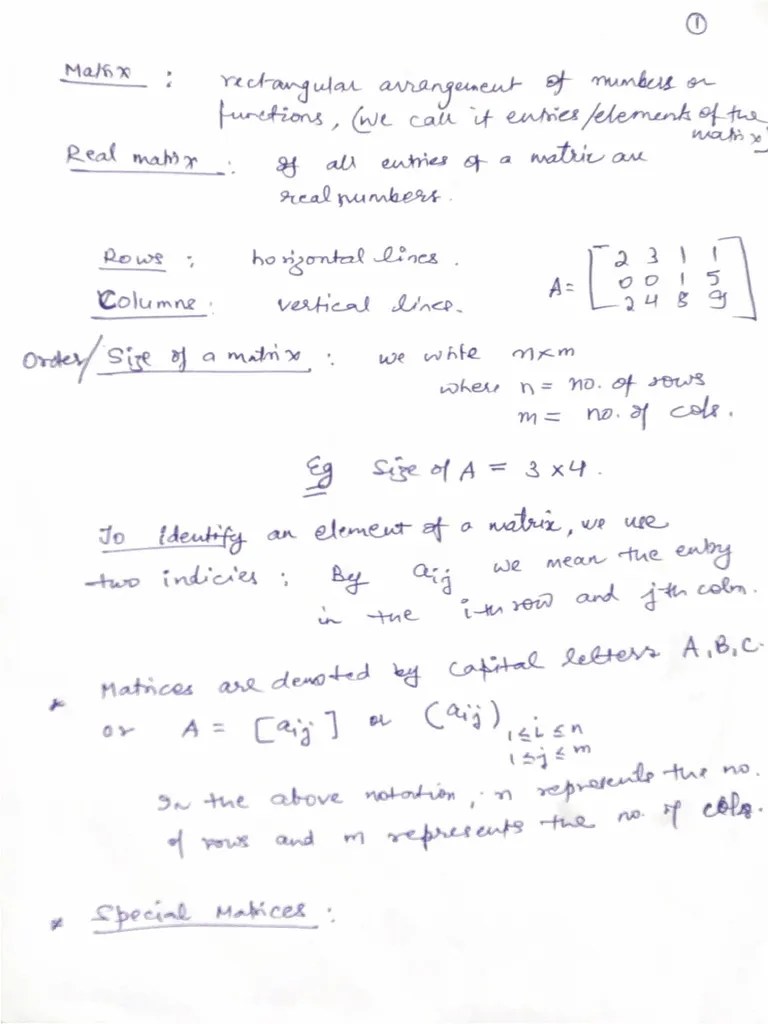 ①
Matrix : rectangular arrangement of numbers or
functions, (we call it entries/elements of the
matrix)
Real matrix : If all entries of a matrix are
real numbers.
Rows : horizontal lines.
Columns : vertical lines.
A = [ 2 3 1 1
0 0 1 5
2 4 8 9 ]
Order/Size of a matrix : we write n×m
where n = no. of rows
m = no. of cols.
Eg Size of A = 3 × 4.
To Identify an element of a matrix, we use
two indicies ; By aij we mean the entry
in the i-th row and j-th colm.
* Matrices are denoted by capital letters A, B, C.
or A = [aij] or (aij) 1≤i≤n
1≤j≤m
In the above notation, n represents the no.
of rows and m represents the no. of cols.
* Special Matrices :